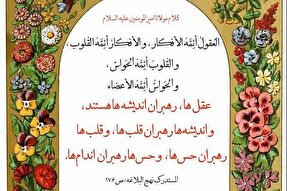 کلام مولانا امیرالمومنین علیه السلام
العقول أئمّة الأفکار، والأفکار أئمّة القلوب،
والقلوب أئمّة الحواسّ،
والحواسّ أئمّة الأعضاء
عقل‌ها، رهبران اندیشه‌ها هستند،
و اندیشه‌ها رهبران قلب‌ها، و قلب‌ها
رهبران حس‌ها، و حس‌ها رهبران اندام‌ها.
المستدرک نهج البلاغه/ص ۱۷۶